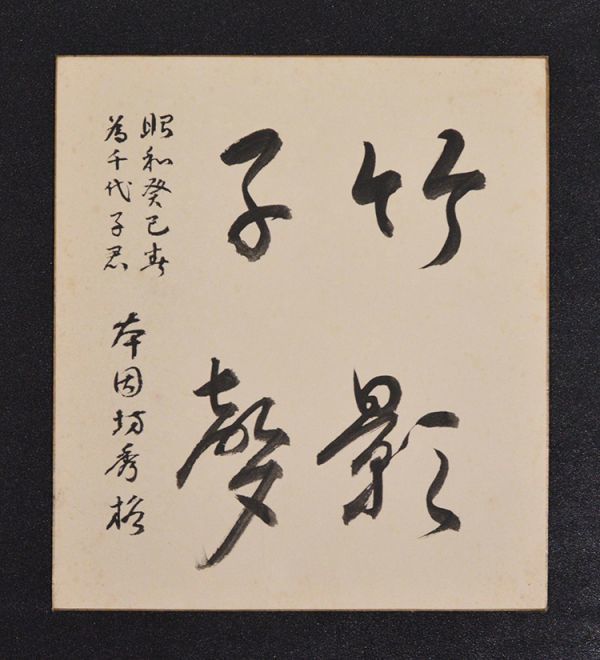 竹影
子聲
昭和癸巳春
為千代子君
本因坊秀格